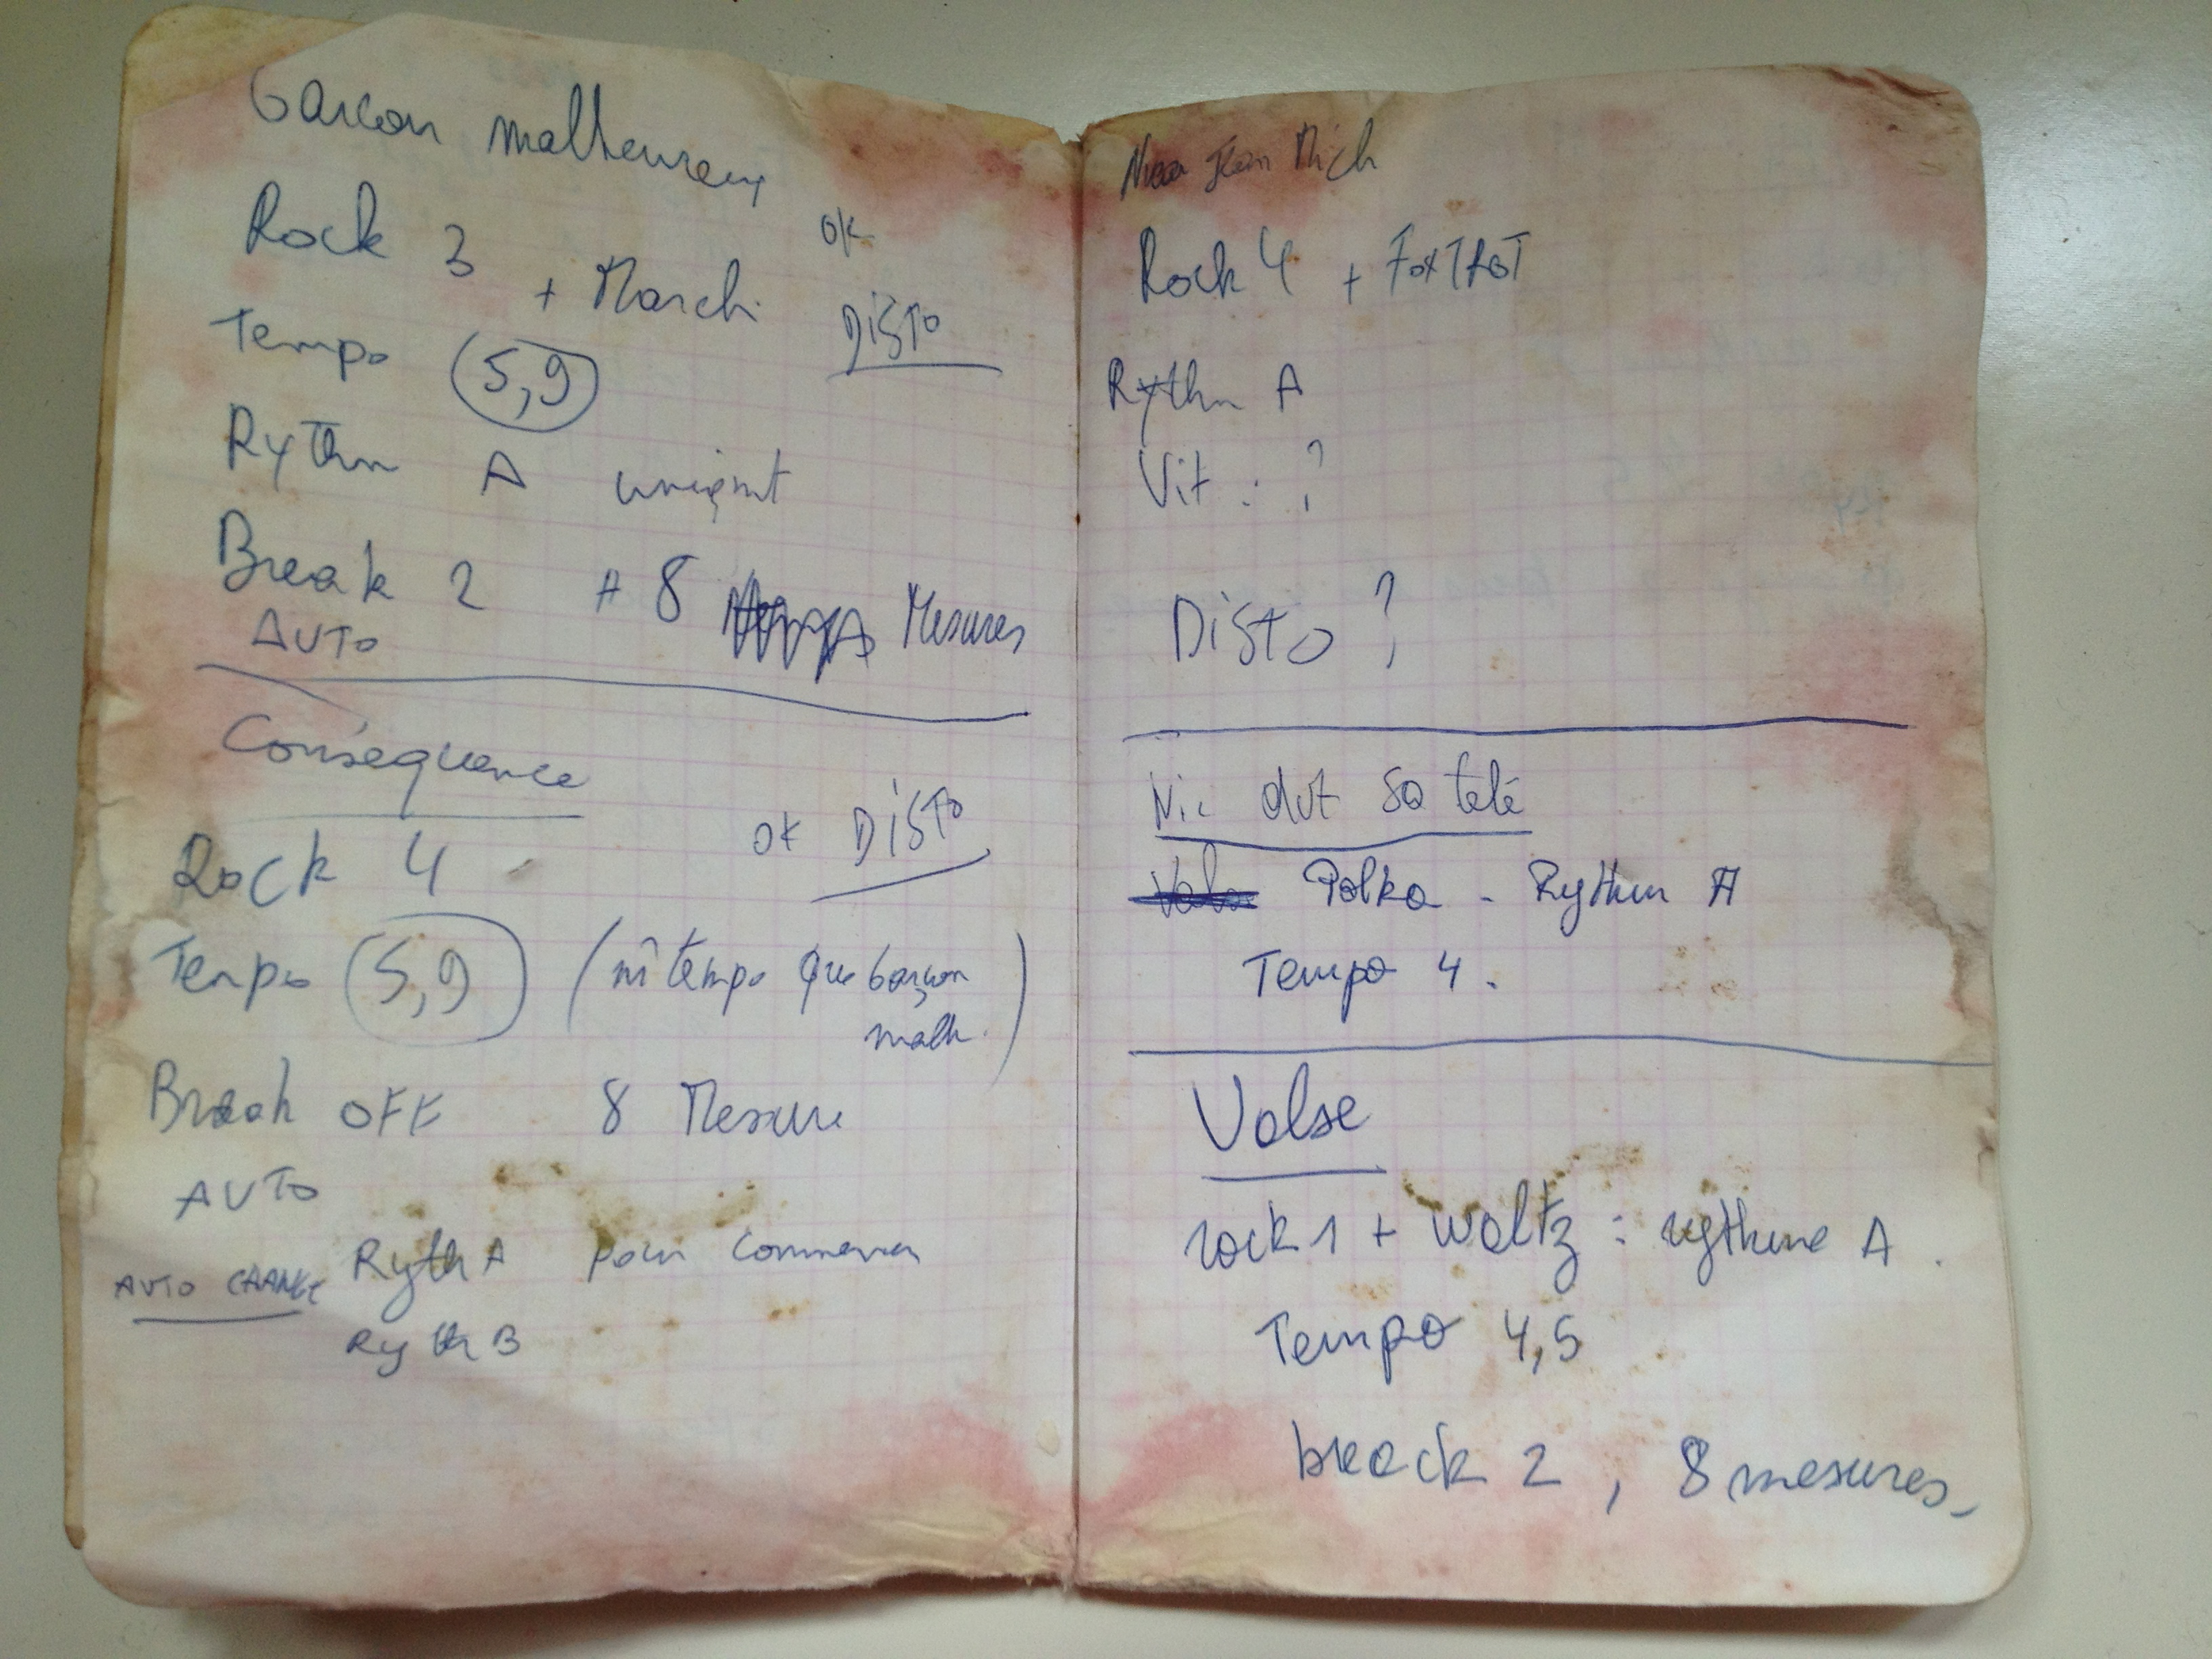 Garcon malheureux
Rock 3 + March OK
Tempo 5,9 DISTO
Rythm A uniqmt
Break 2 A 8 Mesures
AUTO
Conséquence
Rock 4 OK DISTO
Tempo 5,9 (m̂ tempo que Garçon
malh.)
Break OFF 8 Mesure
AUTO
AUTO CHANGE Ryth A pour commencer
Ryth B
Jean Mich
Rock 4 + FOXTROT
Rythm A
Vit : ?
DISTO ?
Nic dut sa tete
Polka - Rythm A
Tempo 4.
Valse
rock 1 + waltz : rythme A.
Tempo 4,5
break 2, 8 mesures,